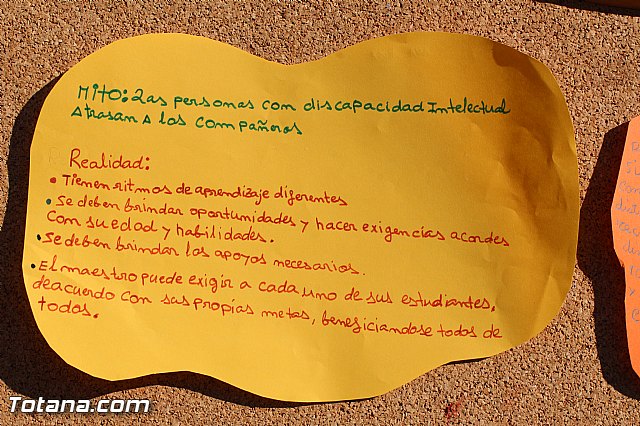 Mito: Las personas con discapacidad Intelectual
atrasan a los compañeros
Realidad:
• Tienen ritmos de aprendizaje diferentes
• Se deben brindar oportunidades y hacer exigencias acordes
con su edad y habilidades.
• Se deben brindar los apoyos necesarios.
• El maestro puede exigir a cada uno de sus estudiantes,
deacuerdo con sas propias metas, beneficiandose todos de
todos.
Totana.com